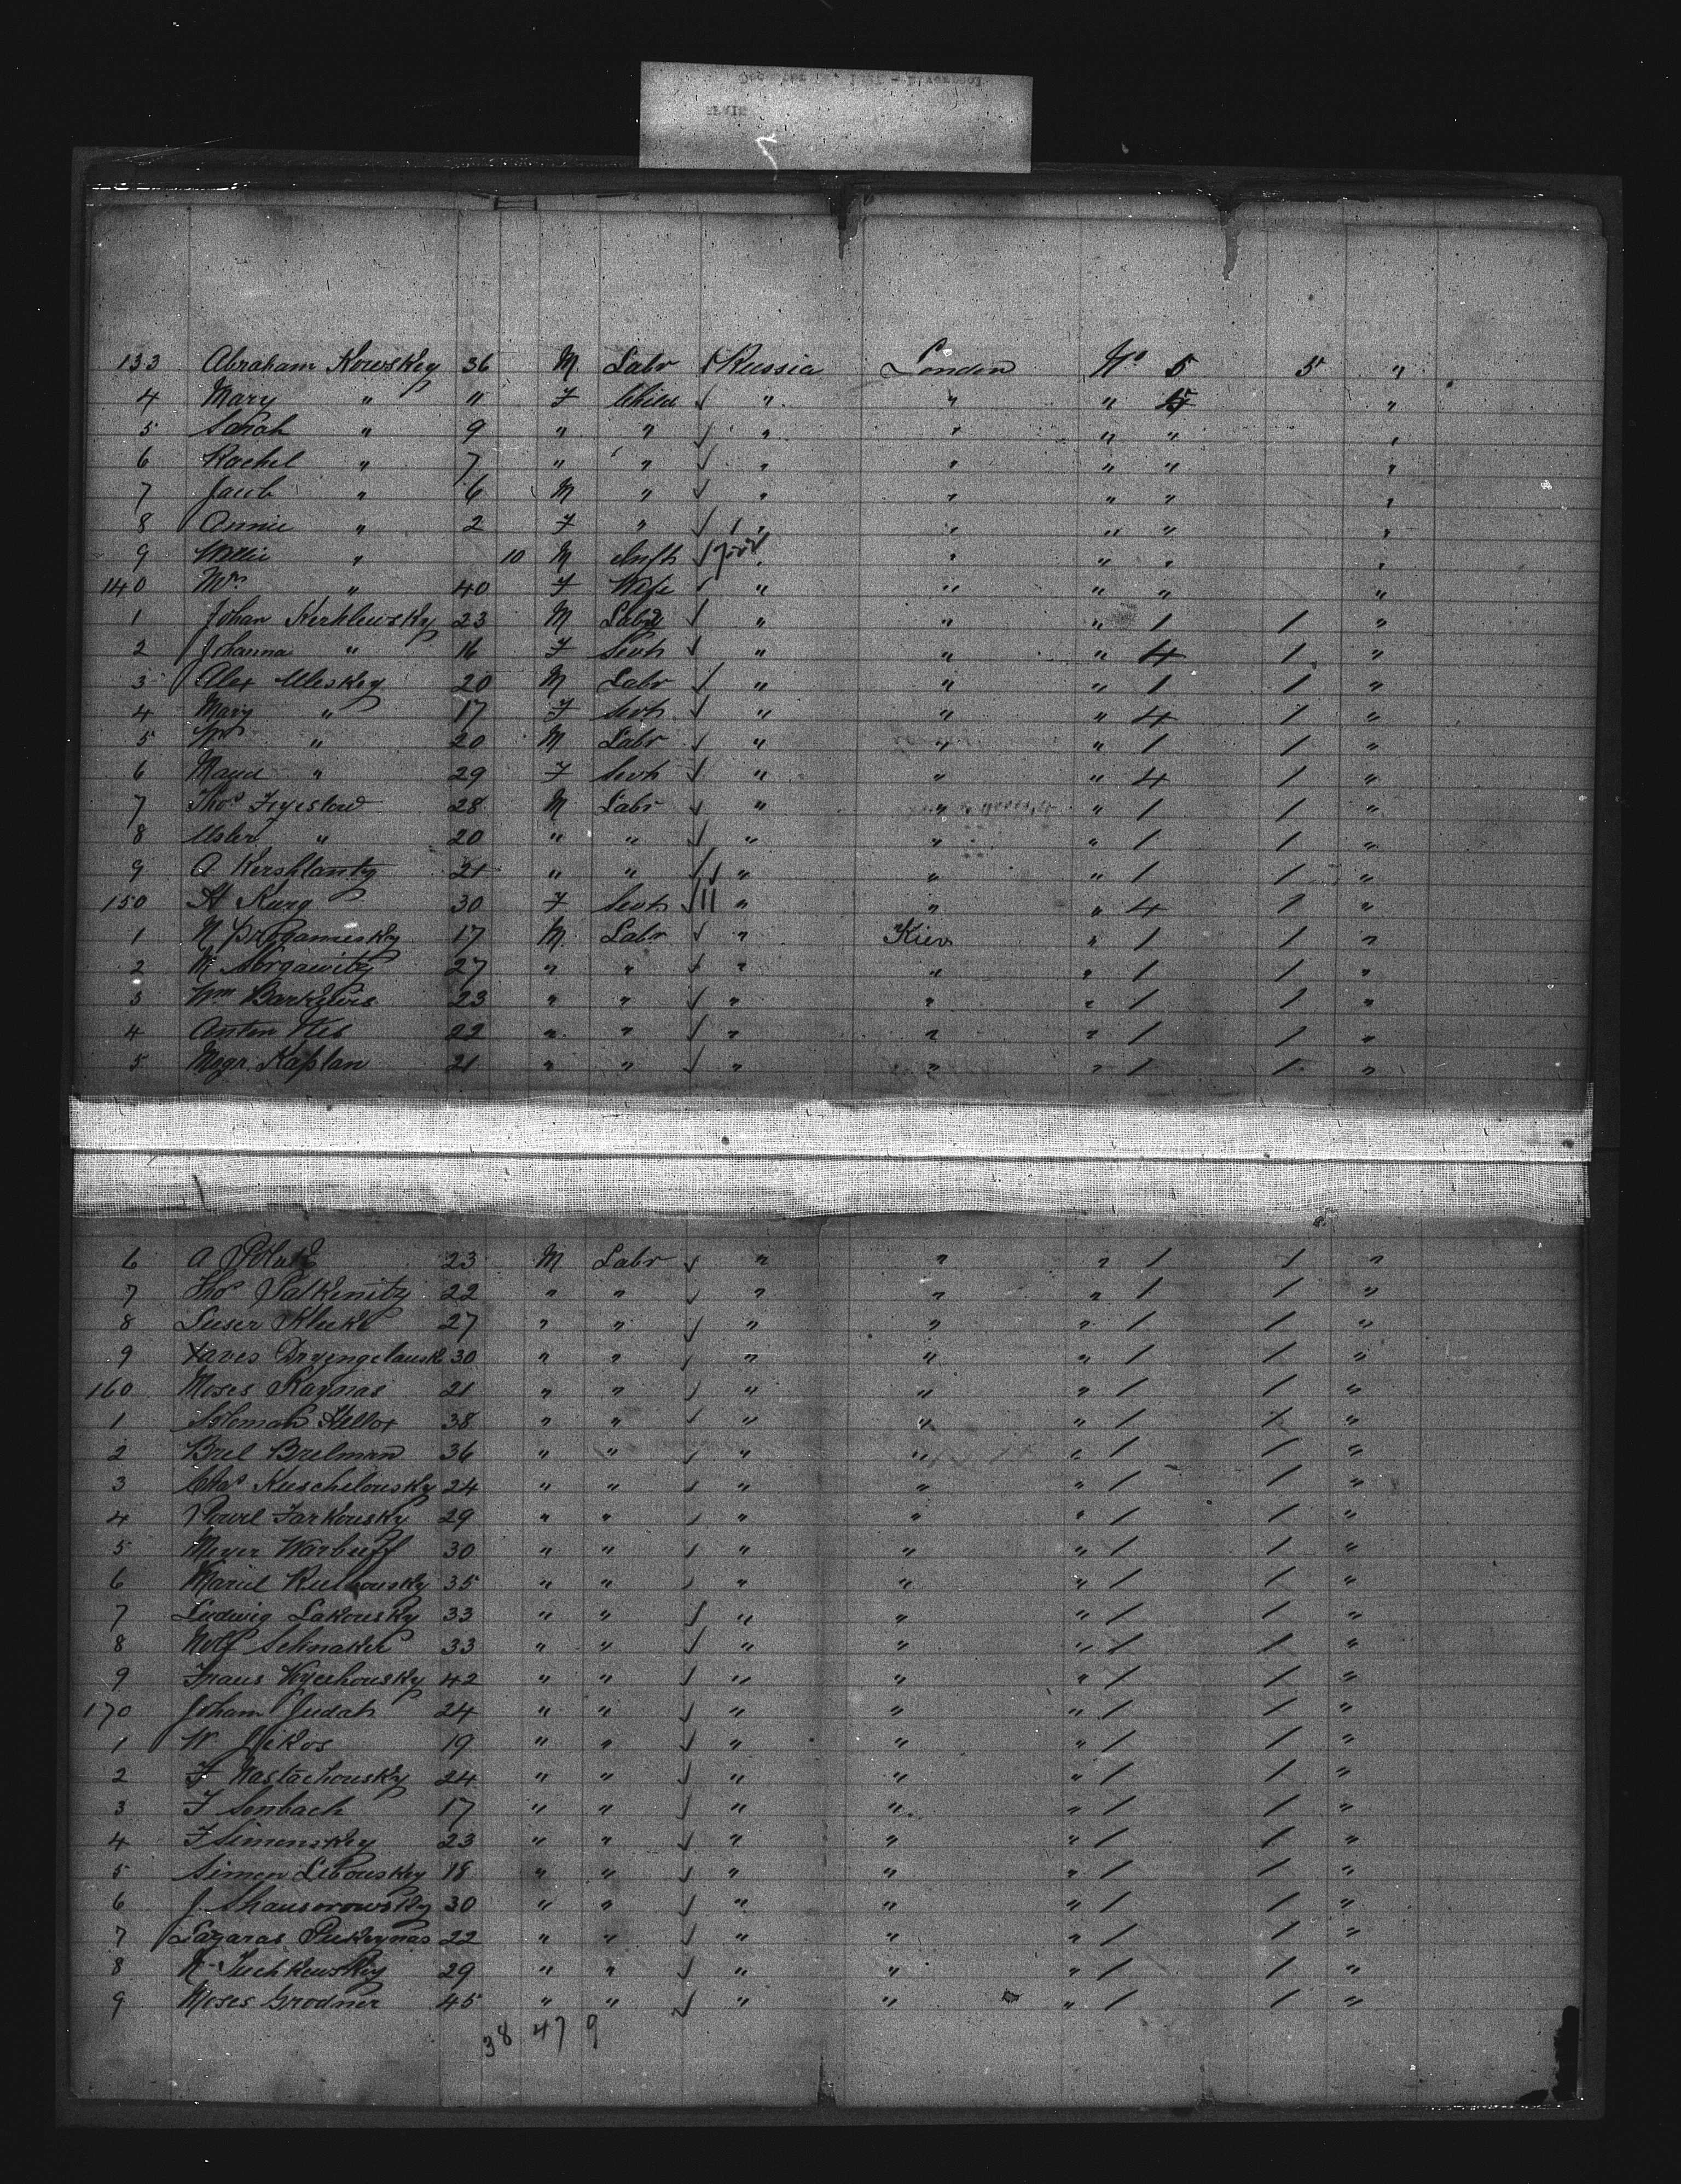 133 Abraham Kowskey 36 M Labr √ Russia London No 5 5 "
4 Mary " 11 F Child √ " " " 5 "
5 Sarah " 9 " " √ " " " " "
6 Rachel " 7 " " √ " " " " "
7 Jacob " 6 M " √ " " " " "
8 Annie " 2 F " √ " " " " "
9 Willie " 10 M Inft √ " " " "
140 Mrs " 40 F Wife √ " " " " "
1 Johan Kerklewsky 23 M Labr √ " " " 1 1 "
2 Johanna " 16 F Sevt √ " " " 4 1 "
3 Alex Uleskey 20 M Labr √ " " " 1 1 "
4 Mary " 17 F Sevt √ " " " 4 1 "
5 Wm " 20 M Labr √ " " " 1 1 "
6 Maud " 29 F Sevt √ " " " 4 1 "
7 Thos 28 M Labr √ " " " 1 1 "
8 Usler " 20 " " √ " " " 1 1 "
9 A Kershlanty 21 " " √√ " " " 1 1 "
150 H Kurg 30 F Sevt √11 " " " 4 1 "
1 N 17 M Labr √ " Kiev " 1 1 "
2 M Sorgawitz 27 " " √ " " " 1 1 "
3 Wm 23 " " √ " " " 1 1 "
4 Anton 22 " " √ " " " 1 1 "
5 Kaplan 21 " " √ " " " 1 1 "
6 A 23 M Labr √ " " " 1 1 "
7 Thos Palkenitz 22 " " √ " " " 1 1 "
8 Luser 27 " " √ " " " 1 1 "
9 Xaves 30 " " √ " " " 1 1 "
160 Moses Raynas 21 " " √ " " " 1 1 "
1 Soloman Kellot 38 " " √ " " " 1 1 "
2 Brel Brelman 36 " " √ " " " 1 1 "
3 Chas Kuschelousky 24 " " √ " " " 1 1 "
4 Pavel Jarkousky 29 " " √ " " " 1 1 "
5 Meyer Warbuff 30 " " √ " " " 1 1 "
6 35 " " √ " " " 1 1 "
7 Ludwig Lakousky 33 " " √ " " " 1 1 "
8 Wolf Schnaker 33 " " √ " " " 1 1 "
9 Frans 42 " " √ " " " 1 1 "
170 Joham Judah 24 " " √ " " " 1 1 "
1 W Jikos 19 " " √ " " " 1 1 "
2 F Nastachousky 24 " " √ " " " 1 1 "
3 F Sonbach 17 " " √ " " " 1 1 "
4 F Simonskey 23 " " √ " " " 1 1 "
5 Simon Libouskey 18 " " √ " " " 1 1 "
6 J. 30 " " √ " " " 1 1 "
7 Lazaras Pukeynas 22 " " √ " " " 1 1 "
8 29 " " √ " " " 1 1 "
9 Moses Grodner 45 " " √ " " " 1 1 "
38 47 9